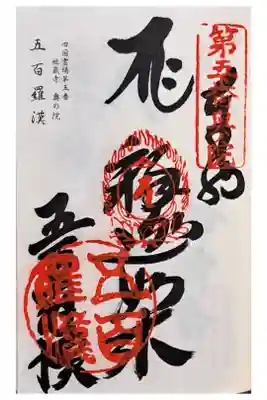 第五番奥院
奉納
釈迦如来
五百羅漢
五百羅漢
四国霊場第五番
地蔵寺 奥の院
五百羅漢